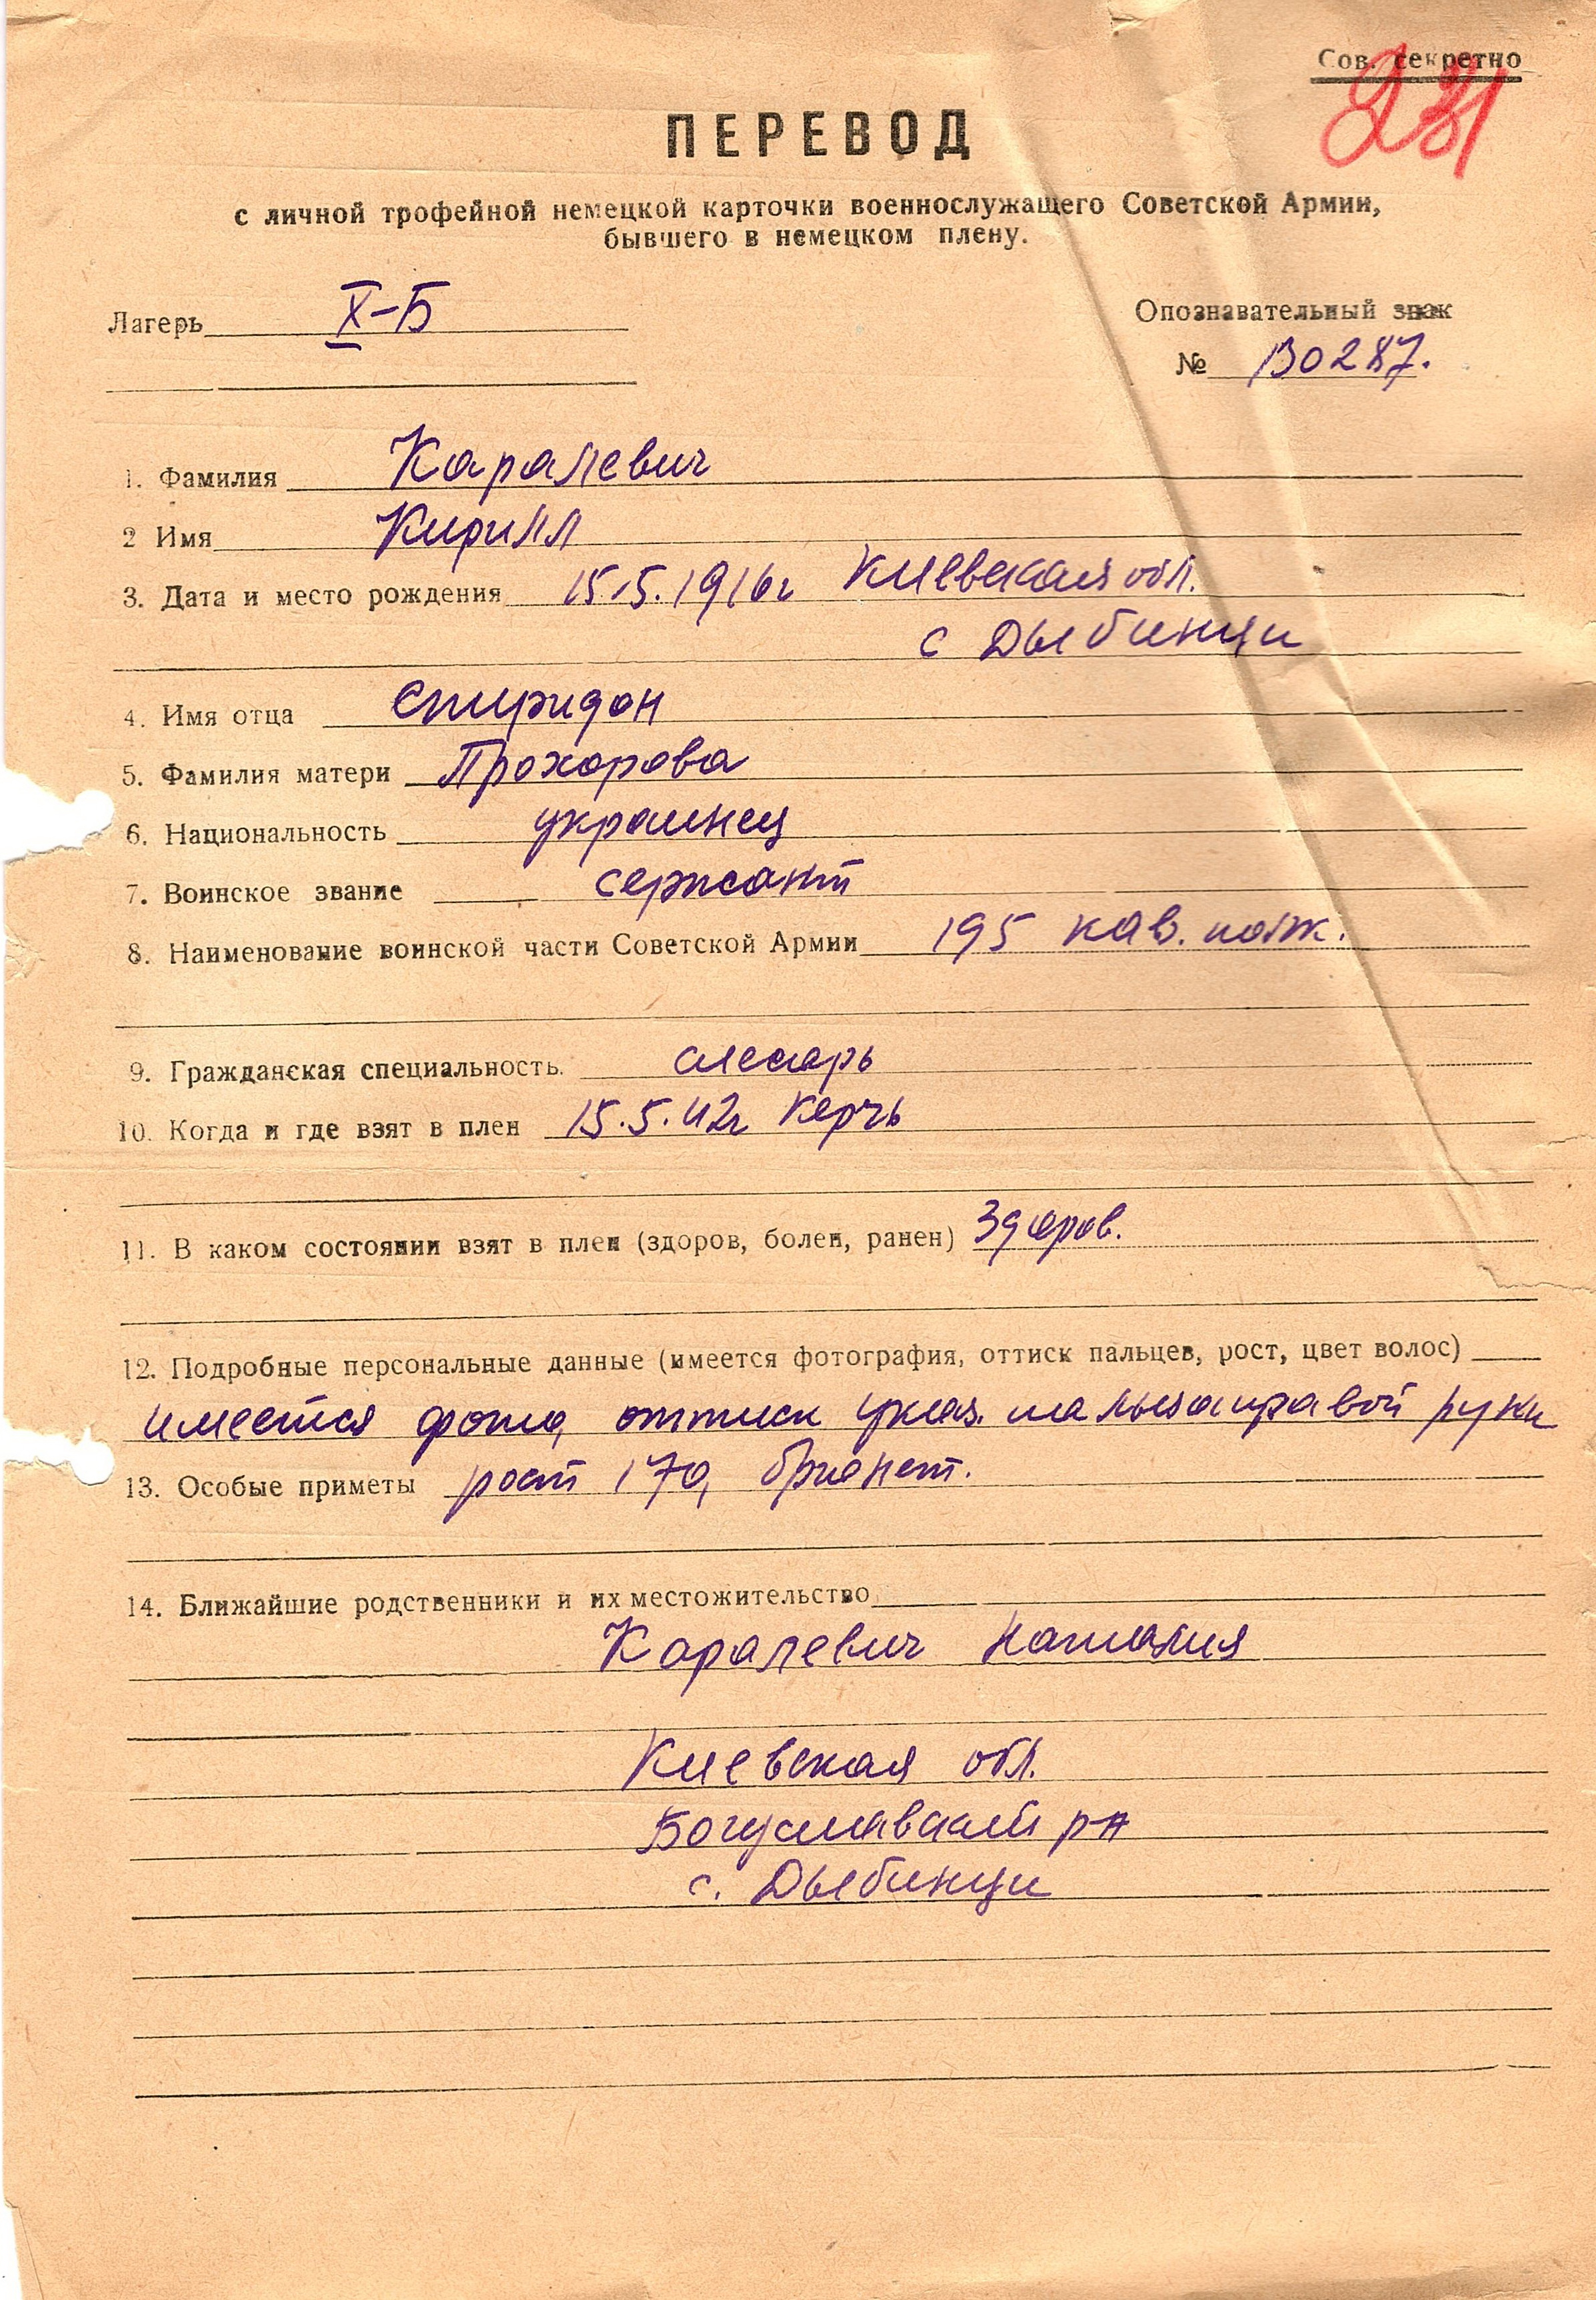 Сов. секретно
231
ПЕРЕВОД
с личной трофейной немецкой карточки военнослужащего Советской Армии,
бывшего в немецком плену.
Лагерь X-Б
Опознавательный знак
№ 130287.
1. Фамилия Каралевич
2 Имя Кирилл
3. Дата и место рождения 15.5.1916г Киевская обл.
с Дыбинци
4. Имя отца Спиридон
5. Фамилия матери Прохорова
6. Национальность украинец
7. Воинское звание сержант
8. Наименование воинской части Советской Армии 195 кав. полк.
9. Гражданская специальность. слесарь
10. Когда и где взят в плен 15.5.42г Керчь
11. В каком состоянии взят в плен (здоров, болен, ранен) Здоров.
12. Подробные персональные данные (имеется фотография, оттиск пальцев, рост, цвет волос)
имеется фото, оттиск указ. пальца правой руки
13. Особые приметы рост 170, брюнет.
14. Ближайшие родственники и их местожительство
Каралевич Наталия
Киевская обл.
Богуславский р-н
с. Дыбинци